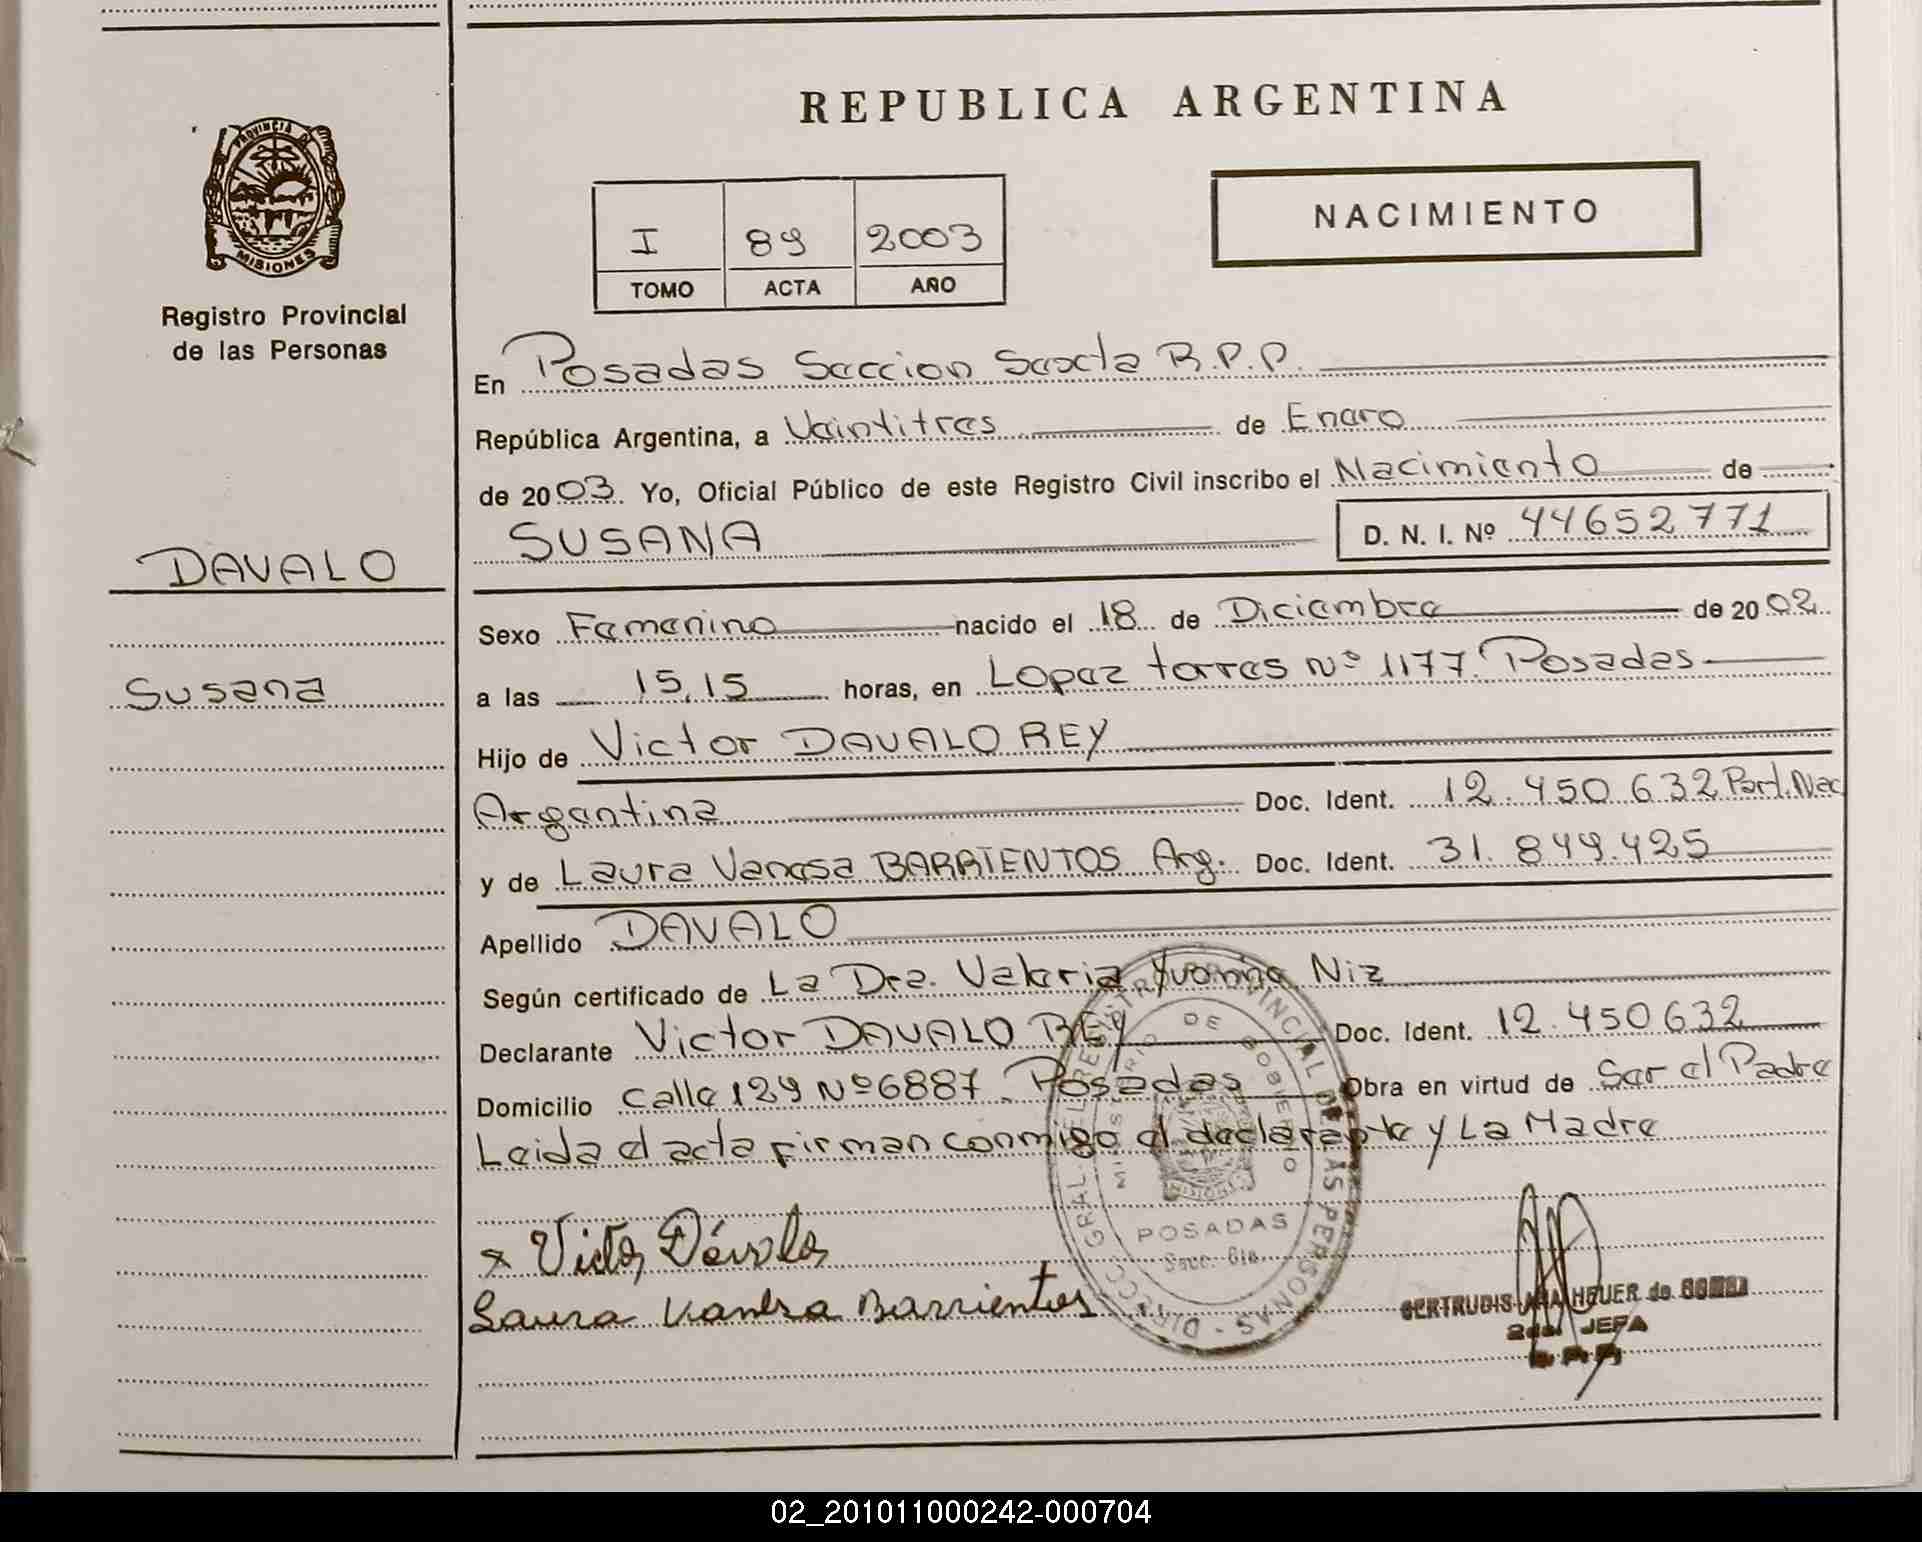 REPUBLICA ARGENTINA
PROVINCIA DE
MISIONES
Registro Provincial
de las Personas
I 89 2003
TOMO ACTA AÑO
NACIMIENTO
En Posadas Seccion Sexta R.P.P.
República Argentina, a Veintitres de Enero
de 2003. Yo, Oficial Público de este Registro Civil inscribo el Nacimiento de
SUSANA D. N. I. Nº 44652771
DAVALO
Susana
Sexo Femenino nacido el 18 de Diciembre de 2002
a las 15,15 horas, en Lopez torres Nº 1177. Posadas
Hijo de Victor DAVALO REY
Argentina Doc. Ident. 12.450.632 Part. Nac
y de Laura Vanesa BARRIENTOS Arg. Doc. Ident. 31.849.425
Apellido DAVALO
Según certificado de La Dra. Valeria Yvonina Niz
Declarante Victor DAVALO REY Doc. Ident. 12.450632
Domicilio Calle 129 Nº 6887. Posadas Obra en virtud de Ser el Padre
Leida el acta firman conmigo el declarante y La Madre
DIRECC. GRAL. DEL REGISTRO PROVINCIAL DE LAS PERSONAS
MINISTERIO DE GOBIERNO
MISIONES
POSADAS
Secc. 6ta.
x Victor Dávalos
Laura Vanesa Barrientos
GERTRUDIS ANA HEUER de
2da. JEFA
R.P.P.
02_201011000242-000704